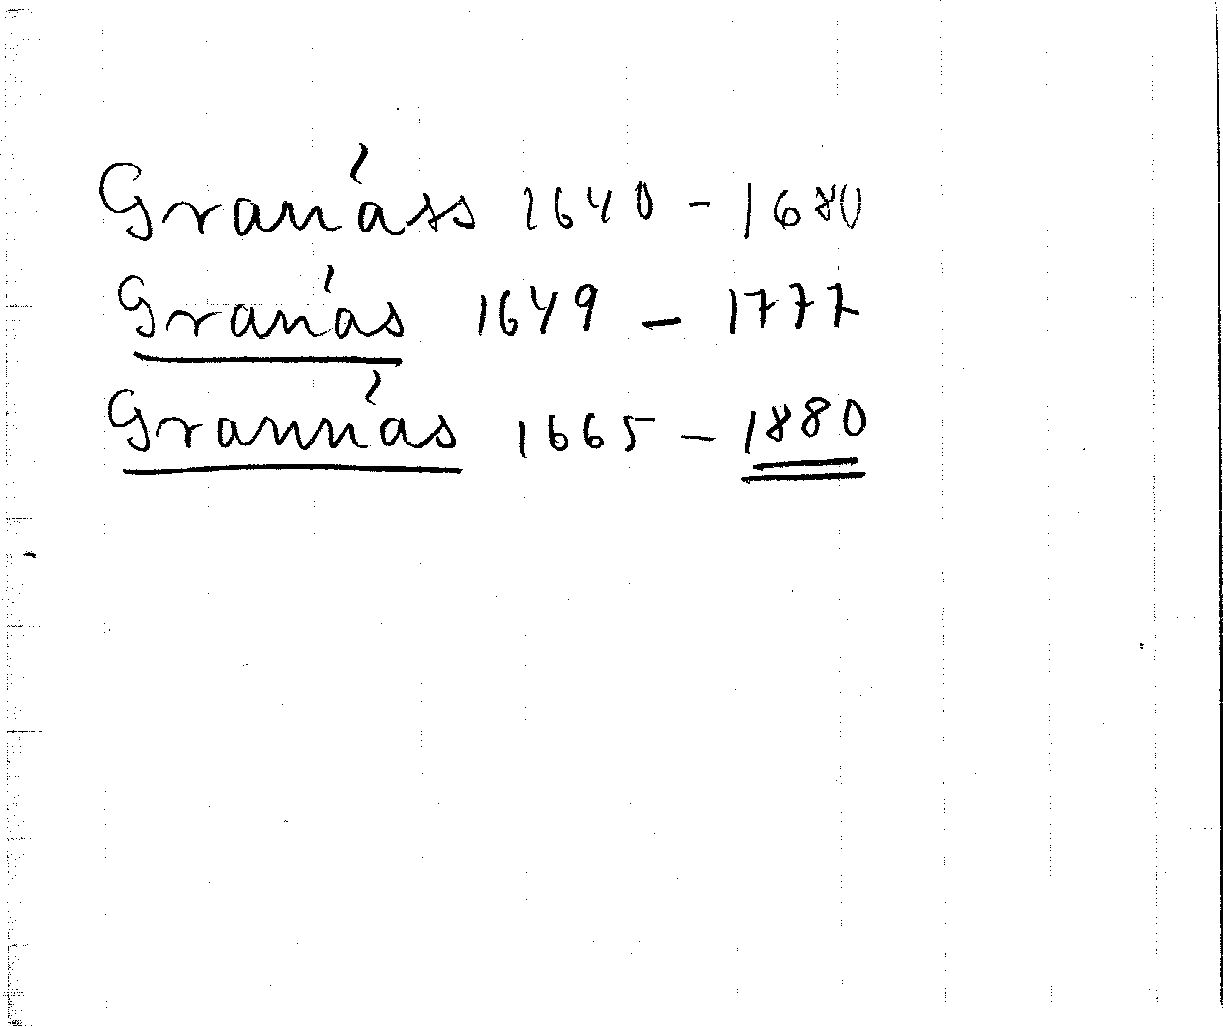 Granáss 1640 - 1680
Granás 1649 - 1777
Grannás 1665 - 1880